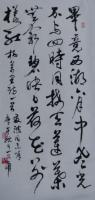 畢竟西湖六月中风光
不与四時同接天莲葉
無窮碧映日荷花别
樣红